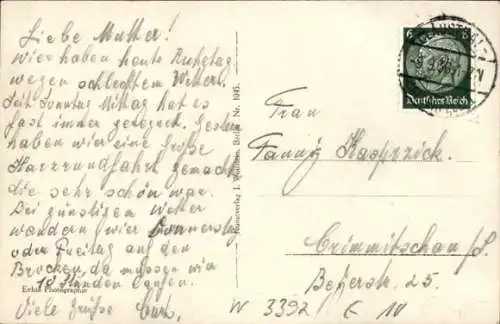 Liebe Mutter!
wir haben heute Ruhetag
wegen schlechtem Wetter.
Seit Sonntag Mittag hat es
fast immer geregnet. Gestern
haben wir eine große
Harzrundfahrt gemacht
die sehr schön war.
Bei günstigem Wetter
wandern wir Donnerstag
oder Freitag auf den
Brocken, da müssen wir
18 Stunden laufen.
Echte Photographie
Viele Grüße Curt.
Nr. 1005.
6
Deutsches Reich
Frau
Fanny Kasprzick.
Crimmitschau i/S.
Beyerstr. 25.
W 3392 E 10